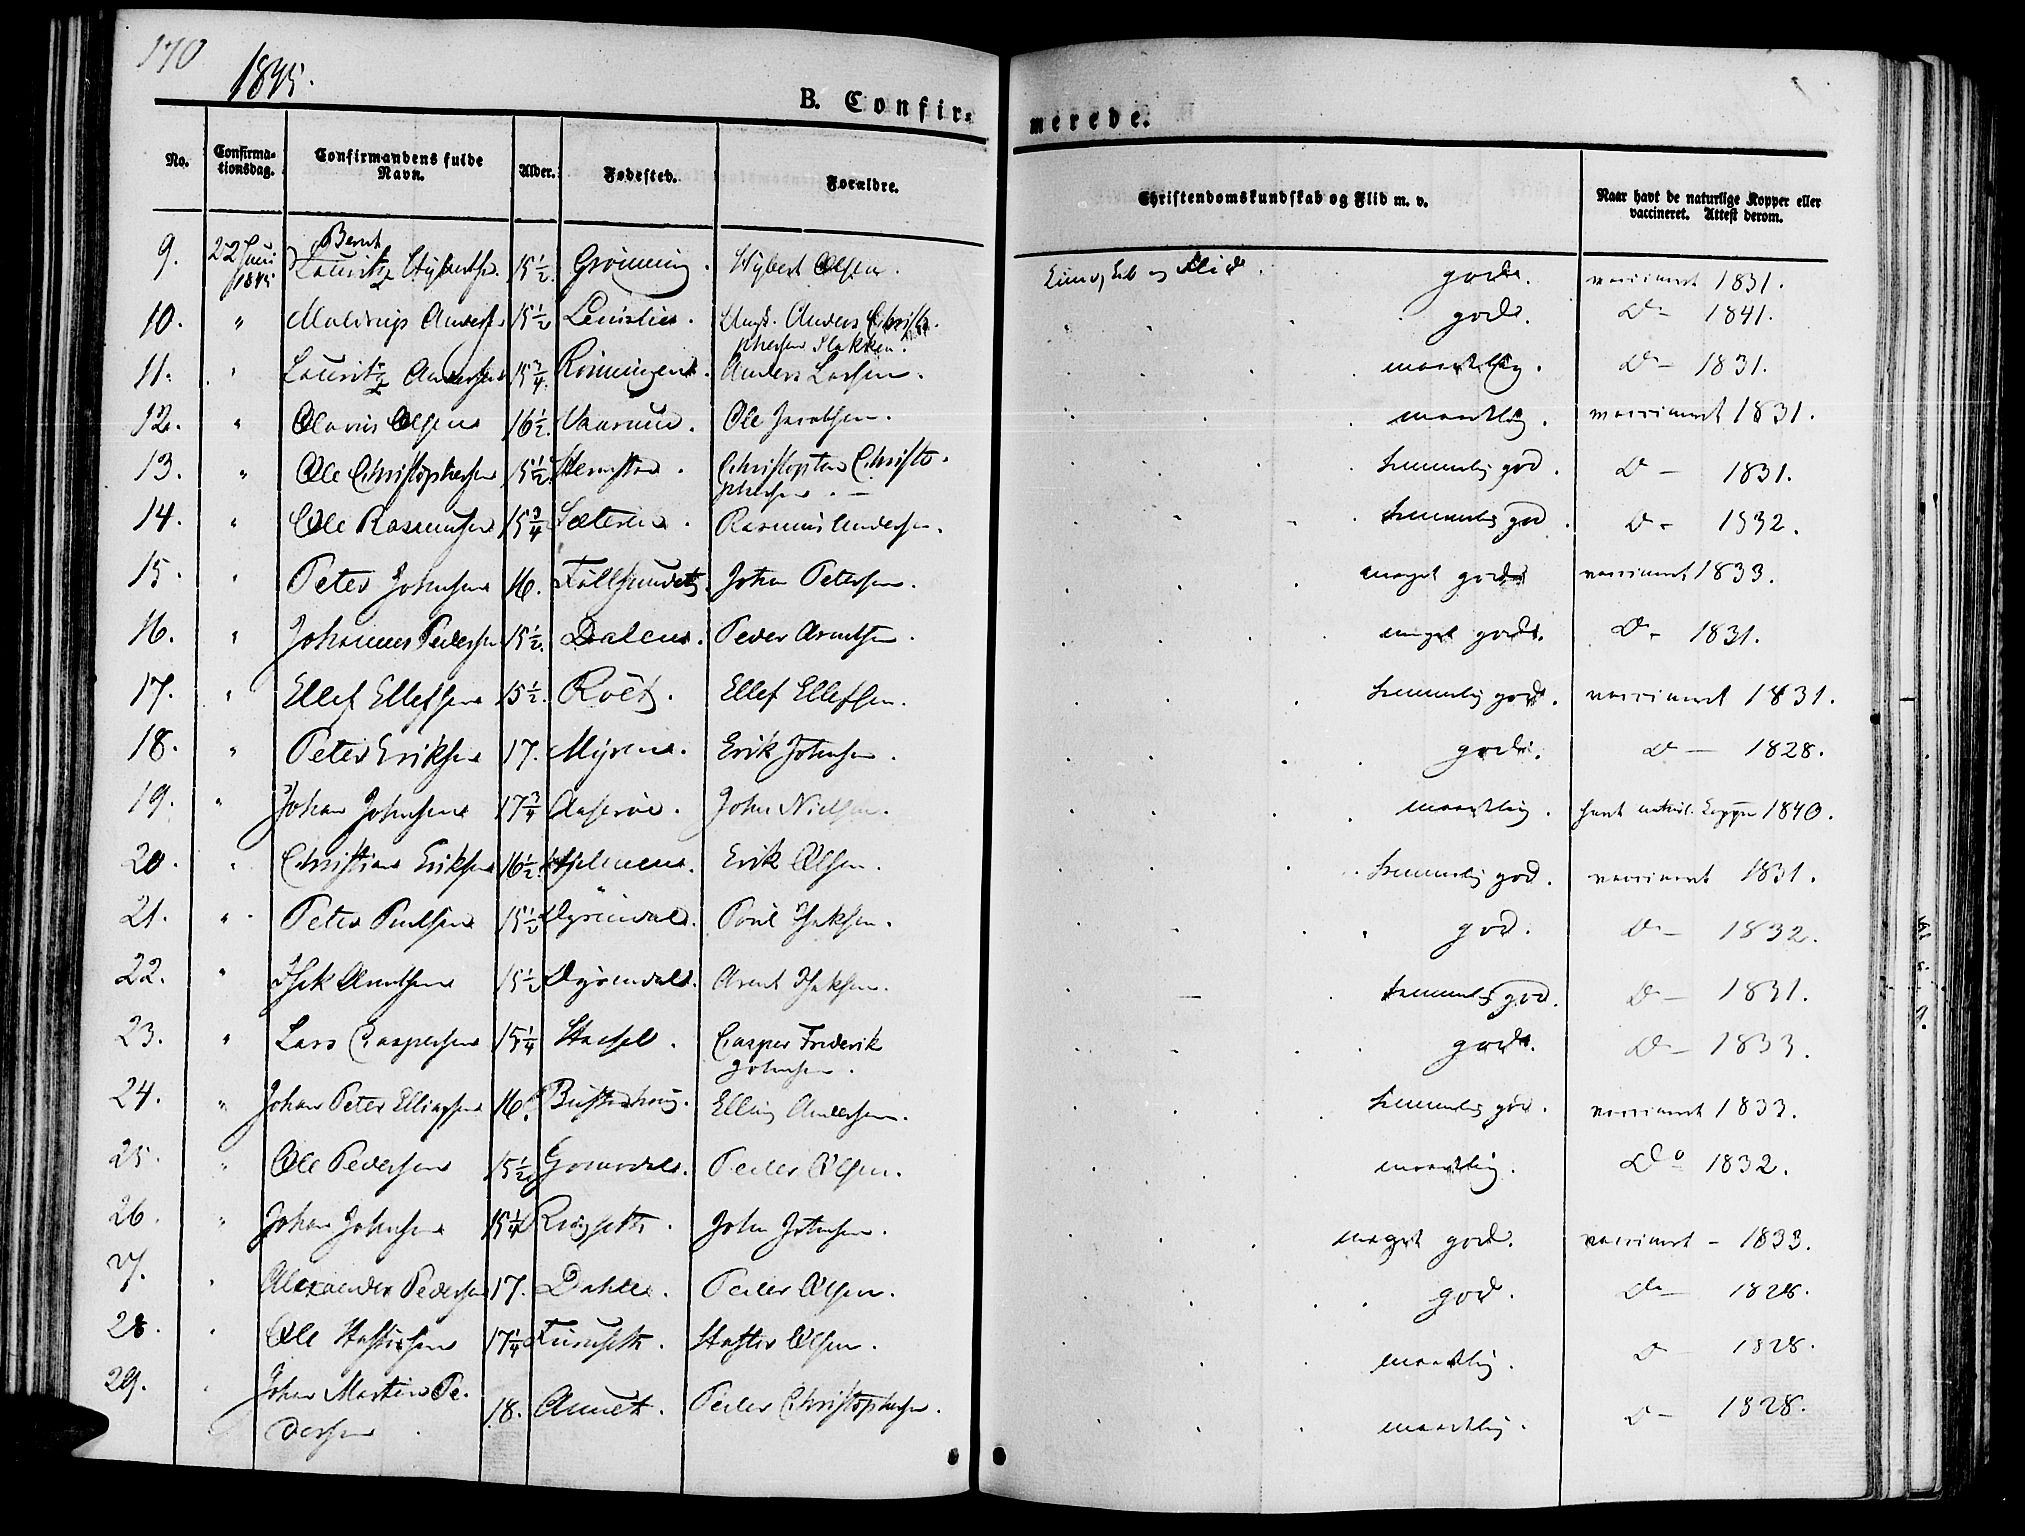 170
1845.
B. Confirmerede.
No. Confirmationsdag. Confirmandens fulde Navn. Alder. Fødested. Forældre. Christendomskundskab og Flid m. v. Naar havt de naturlige Kopper eller vaccineret. Attest derom.
9. 22 Juni 1845 Bernt Lauritz Hybertsen 15 1/2. Grønning. Hybert Olsen. Kundskab og Flid. gode. vaccineret 1831.
10. " Anders 15 1/2 Anders Christophersen gode. Do 1841.
11. " Lauritz Andersen 15 3/4. Anders Larsen. maadelig. Do - 1831.
12. " Olavus Olsen 16 1/2. Ole Jacobsen. maadelig. vaccineret 1831.
13. " Ole Christophersen 15 1/2. Christophersen temmelig god. Do - 1831.
14. " Ole Rasmusen 15 3/4 Sæteren. Rasmus Andersen. temmelig god. Do - 1832.
15. " Peter Johnsen 16. John Petersen. meget gode vaccineret 1833.
16. " Johannes Pedersen 15 1/2. Dalen. Peder Arntsen. meget gode. Do - 1831.
17. " Ellef Ellefsen 15 1/2. Ellef Ellefsen. temmelig god. vaccineret 1831.
18. " Peter Eriksen 17. Myren. Erik Johnsen. gode. Do - 1828.
19. " Johan Johnsen 17 3/4 John Nielsen. maadelig. havt naturl. Kopper 1840.
20. " Christian Eriksen 16 1/2. Erik Olsen. temmelig god. vaccineret 1831.
21. " Peter Paulsen 15 1/2 Dyrendal. Poul Isaksen. god. Do - 1832.
22. " Isak Arntsen 15 1/2 Dyrendal. Arent Isaksen. temmelig god. Do - 1831.
23. " Lars Caspersen 15 1/4 Hassel. Casper Frederik Johnsen. gode. Do - 1833.
24. " Johan Peter Ellingsen 16. Elling Andersen. temmelig god. vaccineret 1833.
25. " Ole Pedersen 15 1/2 Peder Olsen. maadelig. Do 1832.
26. " Johan Johnsen 15 1/4 John Johnsen. meget god. vaccineret - 1833.
27. " Alexander Pedersen 17. Dahle. Peder Olsen. god. Do - 1828.
28. " Ole 17 1/4 Furuseth. Olsen. maadelig. Do 1828.
29. " Johan Martin Pedersen 18. Peder Christophersen. maadelig. Do - 1828.